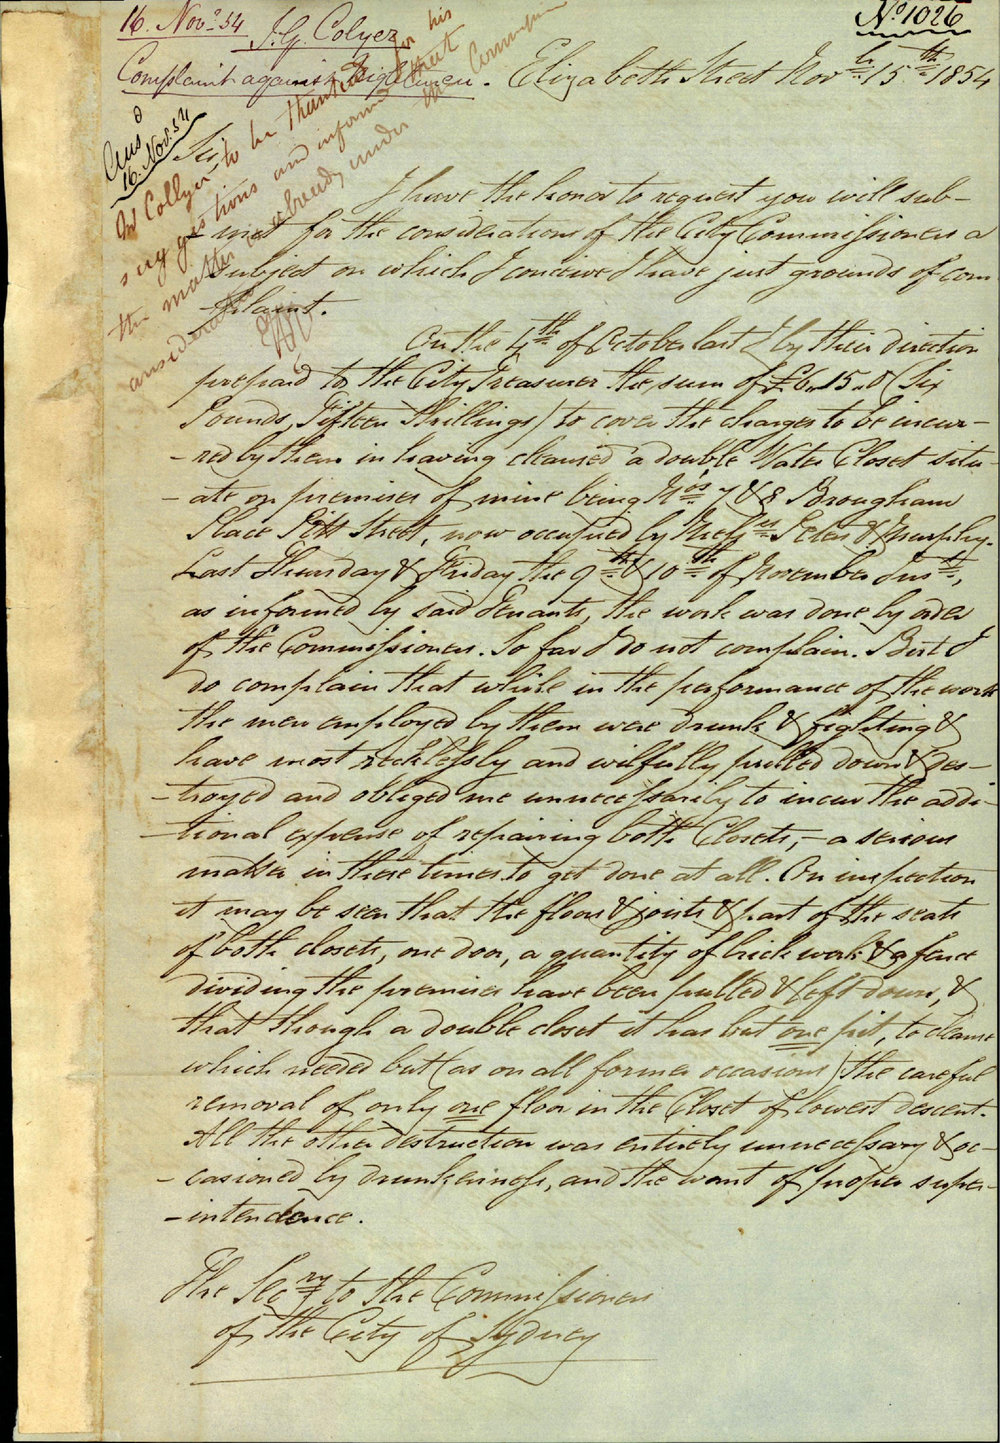 16. Nov.r 54
J. G. Colyer
No. 1026
Complaint against Nightmen.
Elizabeth Street Nov.r 15th 1854
Ans.d
16. Nov. 54
Mr Collyer to be thanked for his
suggestions and informed that
the matter is already under the
consideration
Sir,
I have the honor to request you will sub-
-mit for the considerations of the City Commissioners a
subject on which I conceive I have just grounds of com
-plaint.
On the 4th of October last I by their direction
prepaid to the City Treasurer the sum of £6..15..0 (Six
Pounds, Fifteen Shillings) to cover the charges to be incur-
-red by them in having cleansed a double Water Closet situ-
-ate on premises of mine being Nos 7 & 8 Brougham
Place Pitt Street, now occupied by Messrs Peters & Murphy.
Last Thursday & Friday the 9th & 10th of November Inst.,
as informed by said Tenants, the work was done by order
of the Commissioners. So far I do not complain. But I
do complain that while in the performance of the work
the men employed by them were drunk & fighting &
have most recklessly and wilfully pulled down & des-
-troyed and obliged me unnecessarily to incur the addi-
-tional expense of repairing both Closets, - a serious
matter in these times to get done at all. On inspection
it may be seen that the floors & joists & part of the seats
of both closets, one door, a quantity of brick work & a fence
dividing the premises have been pulled & left down, &
that though a double closet it has but one pit, to cleanse
which needed but (as on all former occasions) the careful
removal of only one floor in the Closet of lowest descent.
All the other destruction was entirely unnecessary & oc-
-casioned by drunkenness, and the want of proper super-
-intendence.
The Secry to the Commissioners
of the City of Sydney